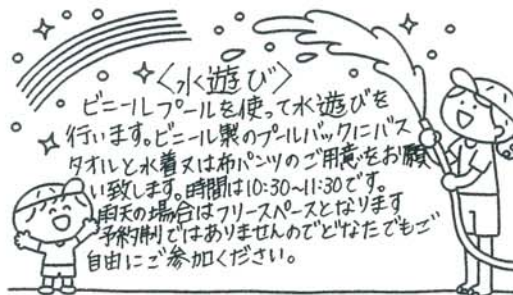 〈水遊び〉
ビニールプールを使って水遊びを
行います。ビニール製のプールバックにバス
タオルと水着又は布パンツのご用意をお願
い致します。時間は10:30~11:30です。
雨天の場合はフリースペースとなります
予約制ではありませんのでどなたでもご
自由にご参加ください。